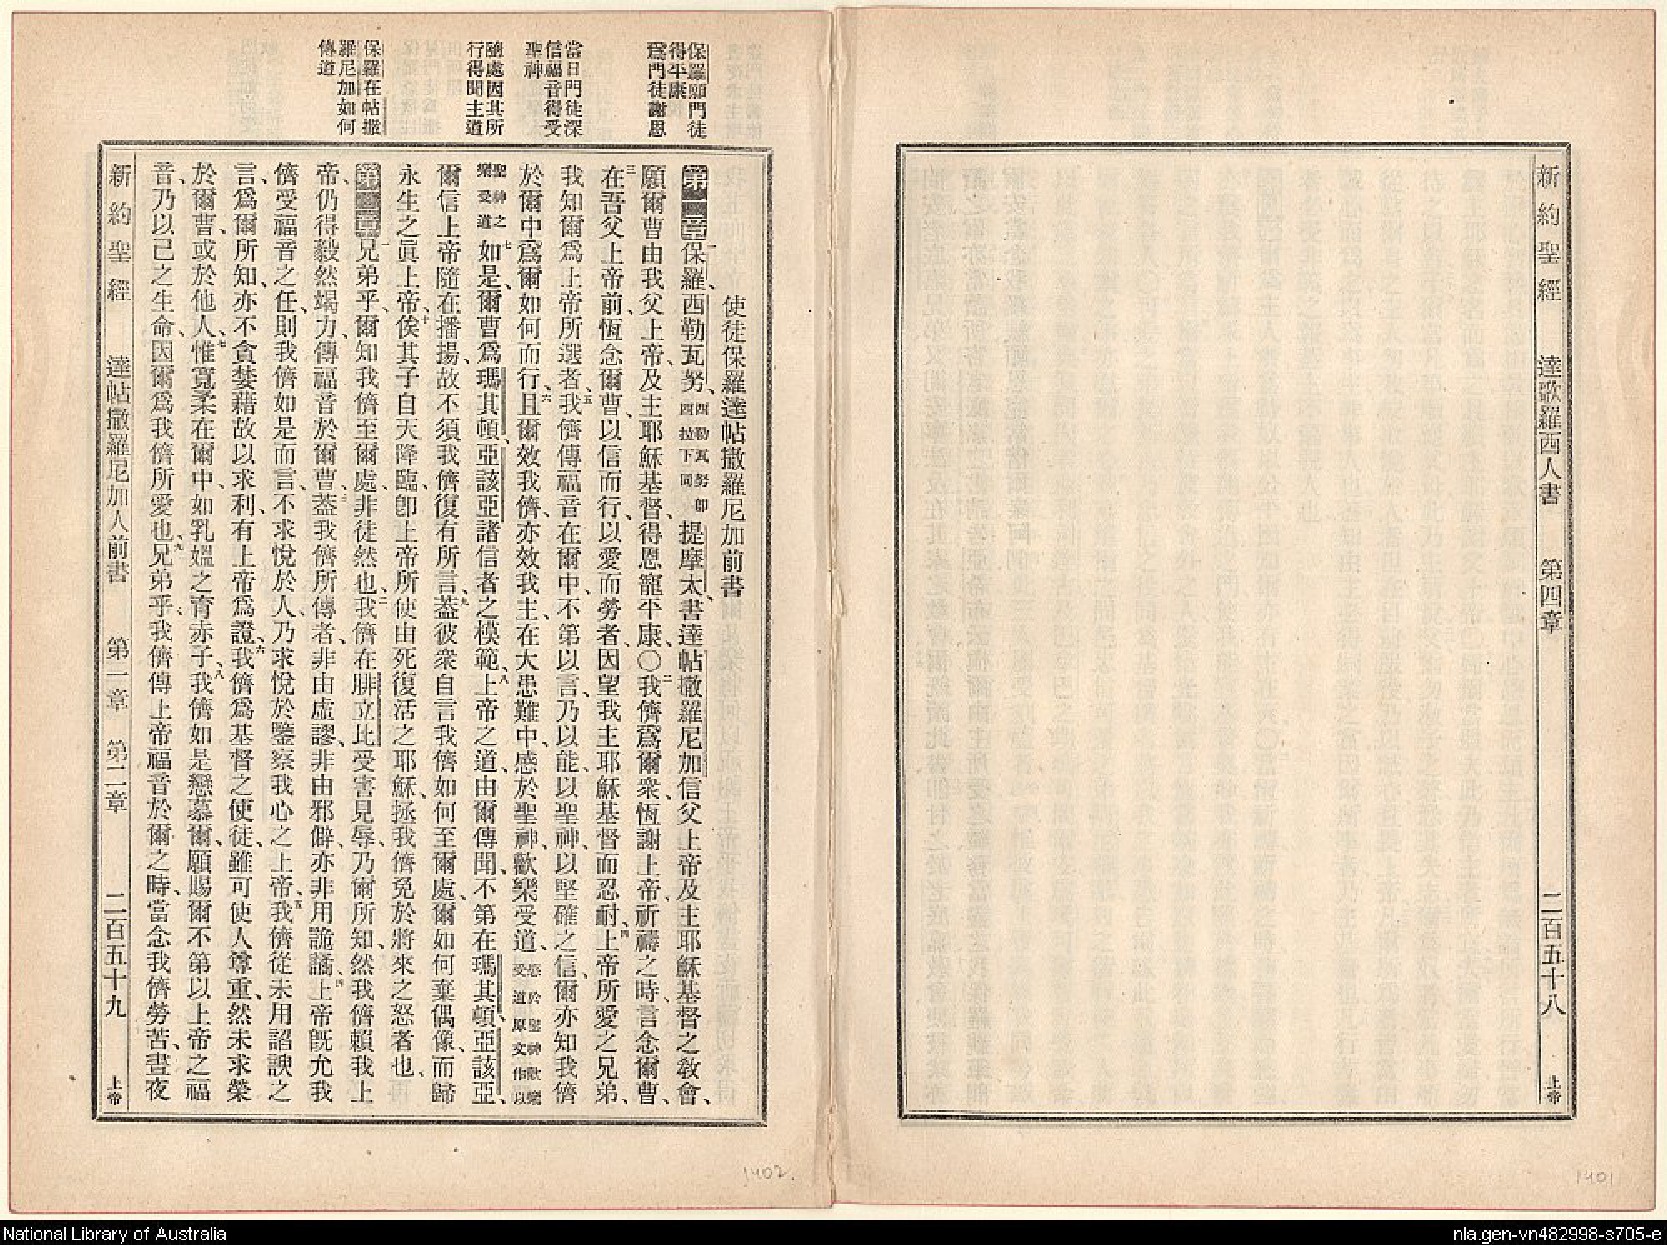 新約聖經 達歌羅西人書 第四章 二百五十八 上帝
保羅願門徒
得平康
爲門徒謝恩
當日門徒深
信福音得受
聖神
隨處因其所
行得聞主道
保羅在帖撒
羅尼加如何
傳道
使徒保羅達帖撒羅尼加前書
第一章一保羅、西勒瓦努、西勒瓦努卽西拉下同提摩太、書達帖撒羅尼加信父上帝及主耶穌基督之敎會、
願爾曹由我父上帝、及主耶穌基督、得恩寵平康、○二我儕爲爾衆恆謝上帝、祈禱之時、言念爾曹、
三在吾父上帝前、恆念爾曹、以信而行、以愛而勞者、因望我主耶穌基督而忍耐、四上帝所愛之兄弟、
我知爾爲上帝所選者、五我儕傳福音在爾中、不第以言、乃以能、以聖神、以堅確之信、爾亦知我儕
於爾中、爲爾如何而行、六且爾效我儕、亦效我主、在大患難中、感於聖神、歡樂受道、感於聖神歡樂受道原文作以
聖神之樂受道七如是、爾曹爲瑪其頓、亞該亞諸信者之模範、八上帝之道、由爾傳聞、不第在瑪其頓、亞該亞、
爾信上帝、隨在播揚、故不須我儕復有所言、九葢彼衆自言我儕如何至爾處、爾如何棄偶像、而歸
永生之眞上帝、十俟其子自天降臨、卽上帝所使由死復活之耶穌、拯我儕免於將來之怒者也、
第二章一兄弟乎、爾知我儕至爾處、非徒然也、二我儕在腓立比受害見辱、乃爾所知、然我儕賴我上
帝、仍得毅然竭力、傳福音於爾曹、三葢我儕所傳者、非由虛謬、非由邪僻、亦非用詭譎、四上帝旣允我
儕受福音之任、則我儕如是而言、不求悅於人、乃求悅於鑒察我心之上帝、五我儕從未用諂諛之
言、爲爾所知、亦不貪婪藉故以求利、有上帝爲證、六我儕爲基督之使徒、雖可使人尊重、然未求榮
於爾曹、或於他人、七惟寬柔在爾中、如乳媼之育赤子、八我儕如是戀慕爾、願賜爾不第以上帝之福
音、乃以己之生命、因爾爲我儕所愛也、九兄弟乎、我儕傳上帝福音於爾之時、當念我儕勞苦、晝夜
新約聖經 達帖撒羅尼加人前書 第一章 第二章 二百五十九 上帝
1402.
1401
National Library of Australia
nla.gen-vn482998-s705-e